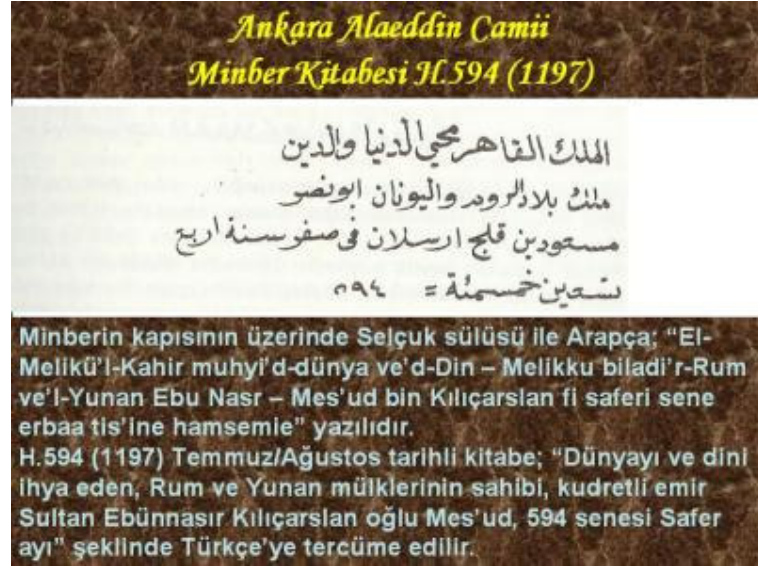 Ankara Alaeddin Camii
Minber Kitabesi H.594 (1197)
الملك القاهر محيي الدنيا والدين
ملك بلاد الروم واليونان ابو نصر
مسعود بن قلج ارسلان فى صفر سنة اربع
تسعين خمسمئة = ٥٩٤
Minberin kapısının üzerinde Selçuk sülüsü ile Arapça; “El-
Melikü’l-Kahir muhyi’d-dünya ve’d-Din – Melikku biladi’r-Rum
ve’l-Yunan Ebu Nasr – Mes’ud bin Kılıçarslan fi saferi sene
erbaa tis’ine hamsemie” yazılıdır.
H.594 (1197) Temmuz/Ağustos tarihli kitabe; “Dünyayı ve dini
ihya eden, Rum ve Yunan mülklerinin sahibi, kudretli emir
Sultan Ebünnasır Kılıçarslan oğlu Mes’ud, 594 senesi Safer
ayı” şeklinde Türkçe’ye tercüme edilir.